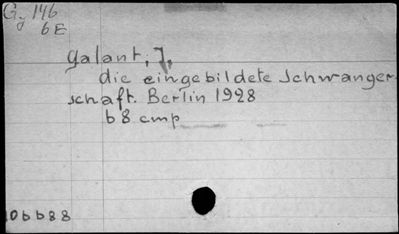 Gy 146
6E
Galant, J,
die eingebildete Schwanger-
schaft. Berlin 1928
b8 cmp
10bb88